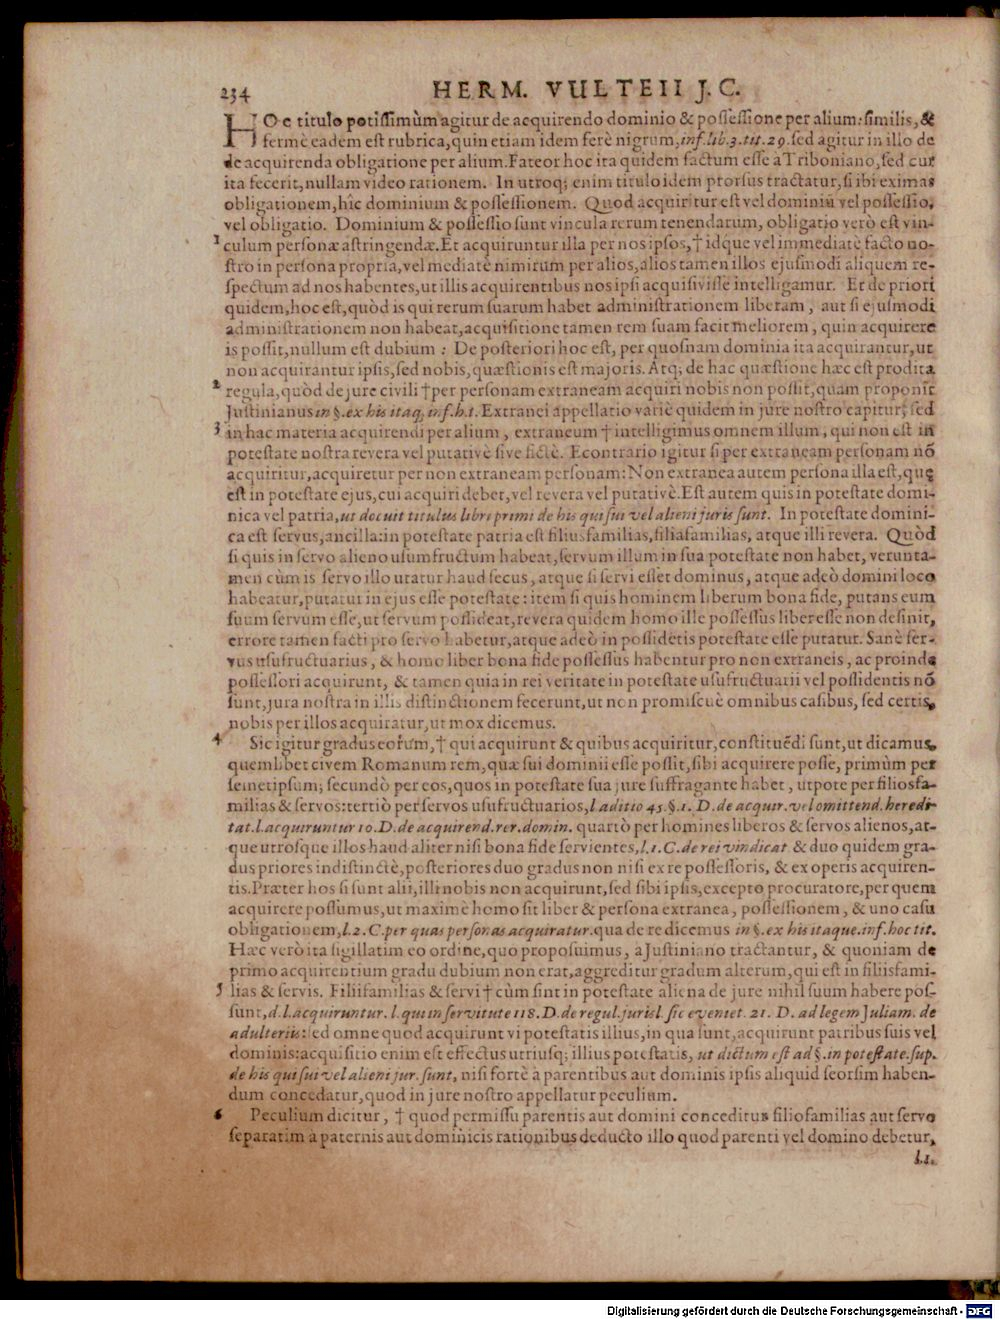 234 HERM. VULTEII J.C.
HOc titulo potiſſimùm agitur de acquirendo dominio & poſſeſſione per alium: ſimilis, &
fermè eadem eſt rubrica, quin etiam idem ferè nigrum, inf. lib. 3. tit. 29. ſed agitur in illo de
de acquirenda obligatione per alium. Fateor hoc ita quidem factum eſſe a Triboniano, ſed cur
ita fecerit, nullam video rationem. In utroq; enim titulo idem prorſus tractatur, ſi ibi eximas
obligationem, hîc dominium & poſſeſſionem. Quod acquiritur eſt vel dominiũ vel poſſeſſio,
vel obligatio. Dominium & poſſeſſio ſunt vincula rerum tenendarum, obligatio verò eſt vin-
1 culum perſonæ aſtringendæ. Et acquiruntur illa per nos ipſos, † idque vel immediatè facto no-
ſtro in perſona propria, vel mediatè nimirum per alios, alios tamen illos ejuſmodi aliquem re-
ſpectum ad nos habentes, ut illis acquirentibus nos ipſi acquiſiviſſe intelligamur. Et de priori
quidem, hoc eſt, quòd is qui rerum ſuarum habet adminiſtrationem liberam, aut ſi ejuſmodi
adminiſtrationem non habeat, acquiſitione tamen rem ſuam facit meliorem, quin acquirere
is poſſit, nullum eſt dubium: De poſteriori hoc eſt, per quoſnam dominia ita acquirantur, ut
non acquirantur ipſis, ſed nobis, quæſtionis eſt majoris. Atq; de hac quæſtione hæc eſt prodita
2 regula, quòd de jure civili † per perſonam extraneam acquiri nobis non poſſit, quam proponit
Juſtinianus in §. ex his itaq; inf. h. t. Extranei appellatio variè quidem in jure noſtro capitur; ſed
3 in hac materia acquirendi per alium, extraneum † intelligimus omnem illum, qui non eſt in
poteſtate noſtra revera vel putativè ſive fictè. Econtrario igitur ſi per extraneam perſonam nõ
acquiritur, acquiretur per non extraneam perſonam: Non extranea autem perſona illa eſt, quę
eſt in poteſtate ejus, cui acquiri debet, vel revera vel putativè. Eſt autem quis in poteſtate domi-
nica vel patria, ut docuit titulus libri primi de his qui ſui vel alieni juris ſunt. In poteſtate domini-
ca eſt ſervus, ancilla: in poteſtate patria eſt filiusfamilias, filiafamilias, atque illi revera. Quòd
ſi quis in ſervo alieno uſumfructum habeat, ſervum illum in ſua poteſtate non habet, verunta-
men cùm is ſervo illo utatur haud ſecus, atque ſi ſervi eſſet dominus, atque adeò domini loco
habeatur, putatur in ejus eſſe poteſtate: item ſi quis hominem liberum bona fide, putans eum
ſuum ſervum eſſe, ut ſervum poſſideat, revera quidem homo ille poſſeſſus liber eſſe non deſinit,
errore tamen facti pro ſervo habetur, atque adeò in poſſidẽtis poteſtate eſſe putatur. Sanè ſer-
vus uſufructuarius, & homo liber bona fide poſſeſſus habentur pro non extraneis, ac proinde
poſſeſſori acquirunt, & tamen quia in rei veritate in poteſtate uſufructuarii vel poſſidentis nõ
ſunt, jura noſtra in illis diſtinctionem fecerunt, ut non promiſcuè omnibus caſibus, ſed certis,
nobis per illos acquiratur, ut mox dicemus.
4 Sic igitur gradus eorum, † qui acquirunt & quibus acquiritur, conſtituẽdi ſunt, ut dicamus,
quemlibet civem Romanum rem, quæ ſui dominii eſſe poſſit, ſibi acquirere poſſe, primùm per
ſemetipſum; ſecundò per eos, quos in poteſtate ſua jure ſuffragante habet, utpote per filiosfa-
milias & ſervos: tertiò per ſervos uſufructuarios, l. aditio 45. §. 1. D. de acquir. vel omittend. heredi-
tat. l. acquiruntur 10. D. de acquirend. rer. domin. quartò per homines liberos & ſervos alienos, at-
que utroſque illos haud aliter niſi bona fide ſervientes, l. 1. C. de rei vindicat & duo quidem gra-
dus priores indiſtinctè, poſteriores duo gradus non niſi ex re poſſeſſoris, & ex operis acquiren-
tis. Præter hos ſi ſunt alii, illi nobis non acquirunt, ſed ſibi ipſis, excepto procuratore, per quem
acquirere poſſumus, ut maximè homo ſit liber & perſona extranea, poſſeſſionem, & uno caſu
obligationem, l. 2. C. per quas perſonas acquiratur. qua de re dicemus in §. ex his itaque. inf. hoc tit.
Hæc verò ita ſigillatim eo ordine, quo propoſuimus, a Juſtiniano tractantur, & quoniam de
primo acquirentium gradu dubium non erat, aggreditur gradum alterum, qui eſt in filiisfami-
5 lias & ſervis. Filiifamilias & ſervi † cùm ſint in poteſtate aliena de jure nihil ſuum habere poſ-
ſunt, d. l. acquiruntur. l. qui in ſervitute 118. D. de regul. juris l. ſic eveniet. 21. D. ad legem Juliam. de
adulteriis: ſed omne quod acquirunt vi poteſtatis illius, in qua ſunt, acquirunt patribus ſuis vel
dominis: acquiſitio enim eſt effectus utriuſq; illius poteſtatis, ut dictum eſt ad §. in poteſtate. ſup.
de his qui ſui vel alieni jur. ſunt, niſi fortè à parentibus aut dominis ipſis aliquid ſeorſim haben-
dum concedatur, quod in jure noſtro appellatur peculium.
6 Peculium dicitur, † quod permiſſu parentis aut domini conceditur filiofamilias aut ſervo
ſeparatim à paternis aut dominicis rationibus deducto illo quod parenti vel domino debetur,
l. 1.
Digitalisierung gefördert durch die Deutsche Forschungsgemeinschaft - DFG